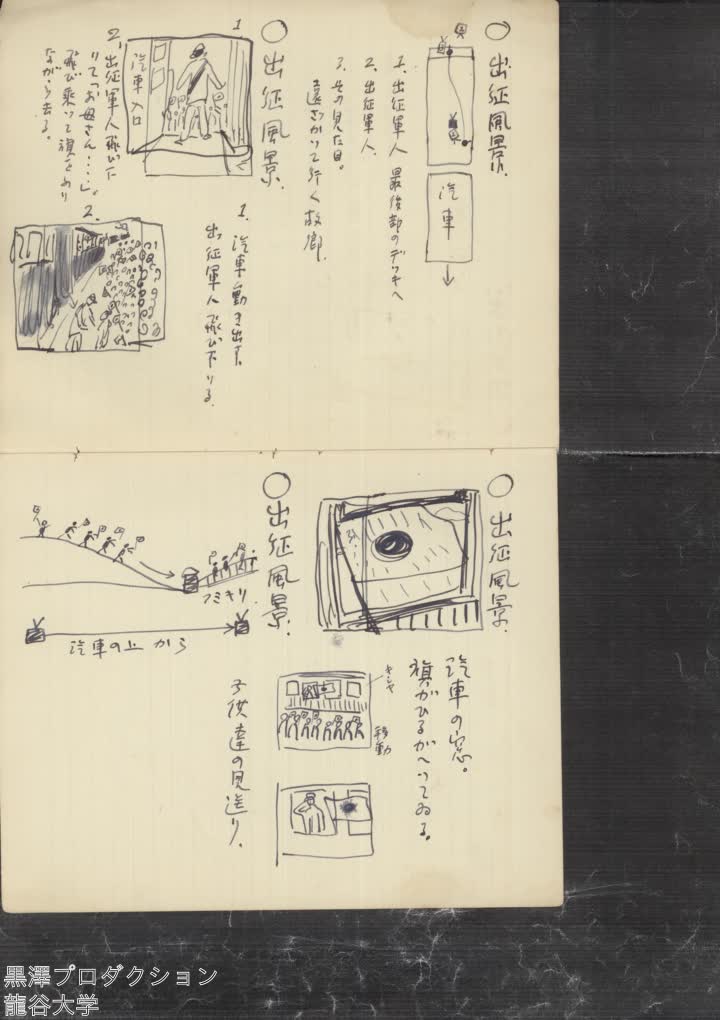 ○ 出征風景.
汽車
1. 出征軍人 最後部のデッキへ
2. 出征軍人.
3. その見た目。
遠ざかって行く故郷.
○ 出征風景.
1
汽車入口
1. 汽車動き出す.
出征軍人飛び下りる.
2. 出征軍人飛び下
りて「お母さん・・・」.
飛び乗って旗をふり
ながら去る。
2.
○ 出征風景.
汽車の窓。
旗がひるがへってゐる。
キシャ
移動
○ 出征風景.
フミキリ
汽車の上から
子供達の見送り.
黒澤プロダクション
龍谷大学